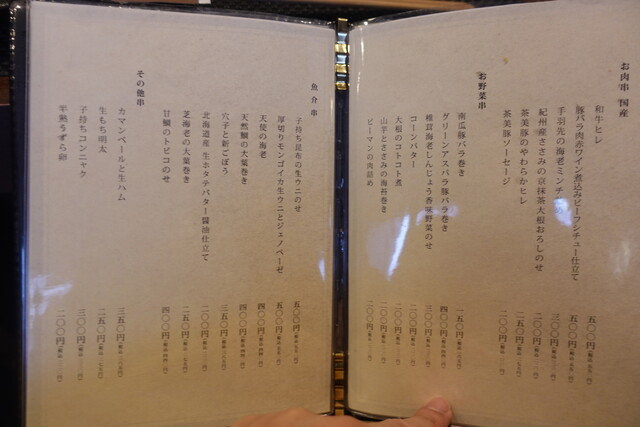 お肉串 国産
和牛ヒレ 五〇〇円
豚バラ肉赤ワイン煮込みビーフシチュー仕立て 五〇〇円
手羽先の海老ミンチ 三〇〇円
紀州産ささみの京抹茶大根おろしのせ 二〇〇円
茶美豚のやわらかヒレ 二五〇円
茶美豚ソーセージ 二〇〇円
お野菜串
南瓜豚バラ巻き 一五〇円
グリーンアスパラ豚バラ巻き 四〇〇円
椎茸海老しんじょう香味野菜のせ 三〇〇円
コーンバター 二〇〇円
大根のコトコト煮 二〇〇円
山芋とささみの海苔巻き 二〇〇円
ピーマンの肉詰め 二〇〇円
魚介串
子持ち昆布の生ウニのせ 五〇〇円
厚切りモンゴイカ生ウニとジェノベーゼ 五〇〇円
天使の海老 四〇〇円
天然鯛の大葉巻き 四〇〇円
穴子と新ごぼう 三五〇円
北海道産 生ホタテバター醤油仕立て 二〇〇円
芝海老の大葉巻き 二五〇円
甘鯛のトビコのせ 四〇〇円
その他串
カマンベールと生ハム 三五〇円
生もち明太 二五〇円
子持ちコンニャク 三〇〇円
半熟うずら卵 二〇〇円